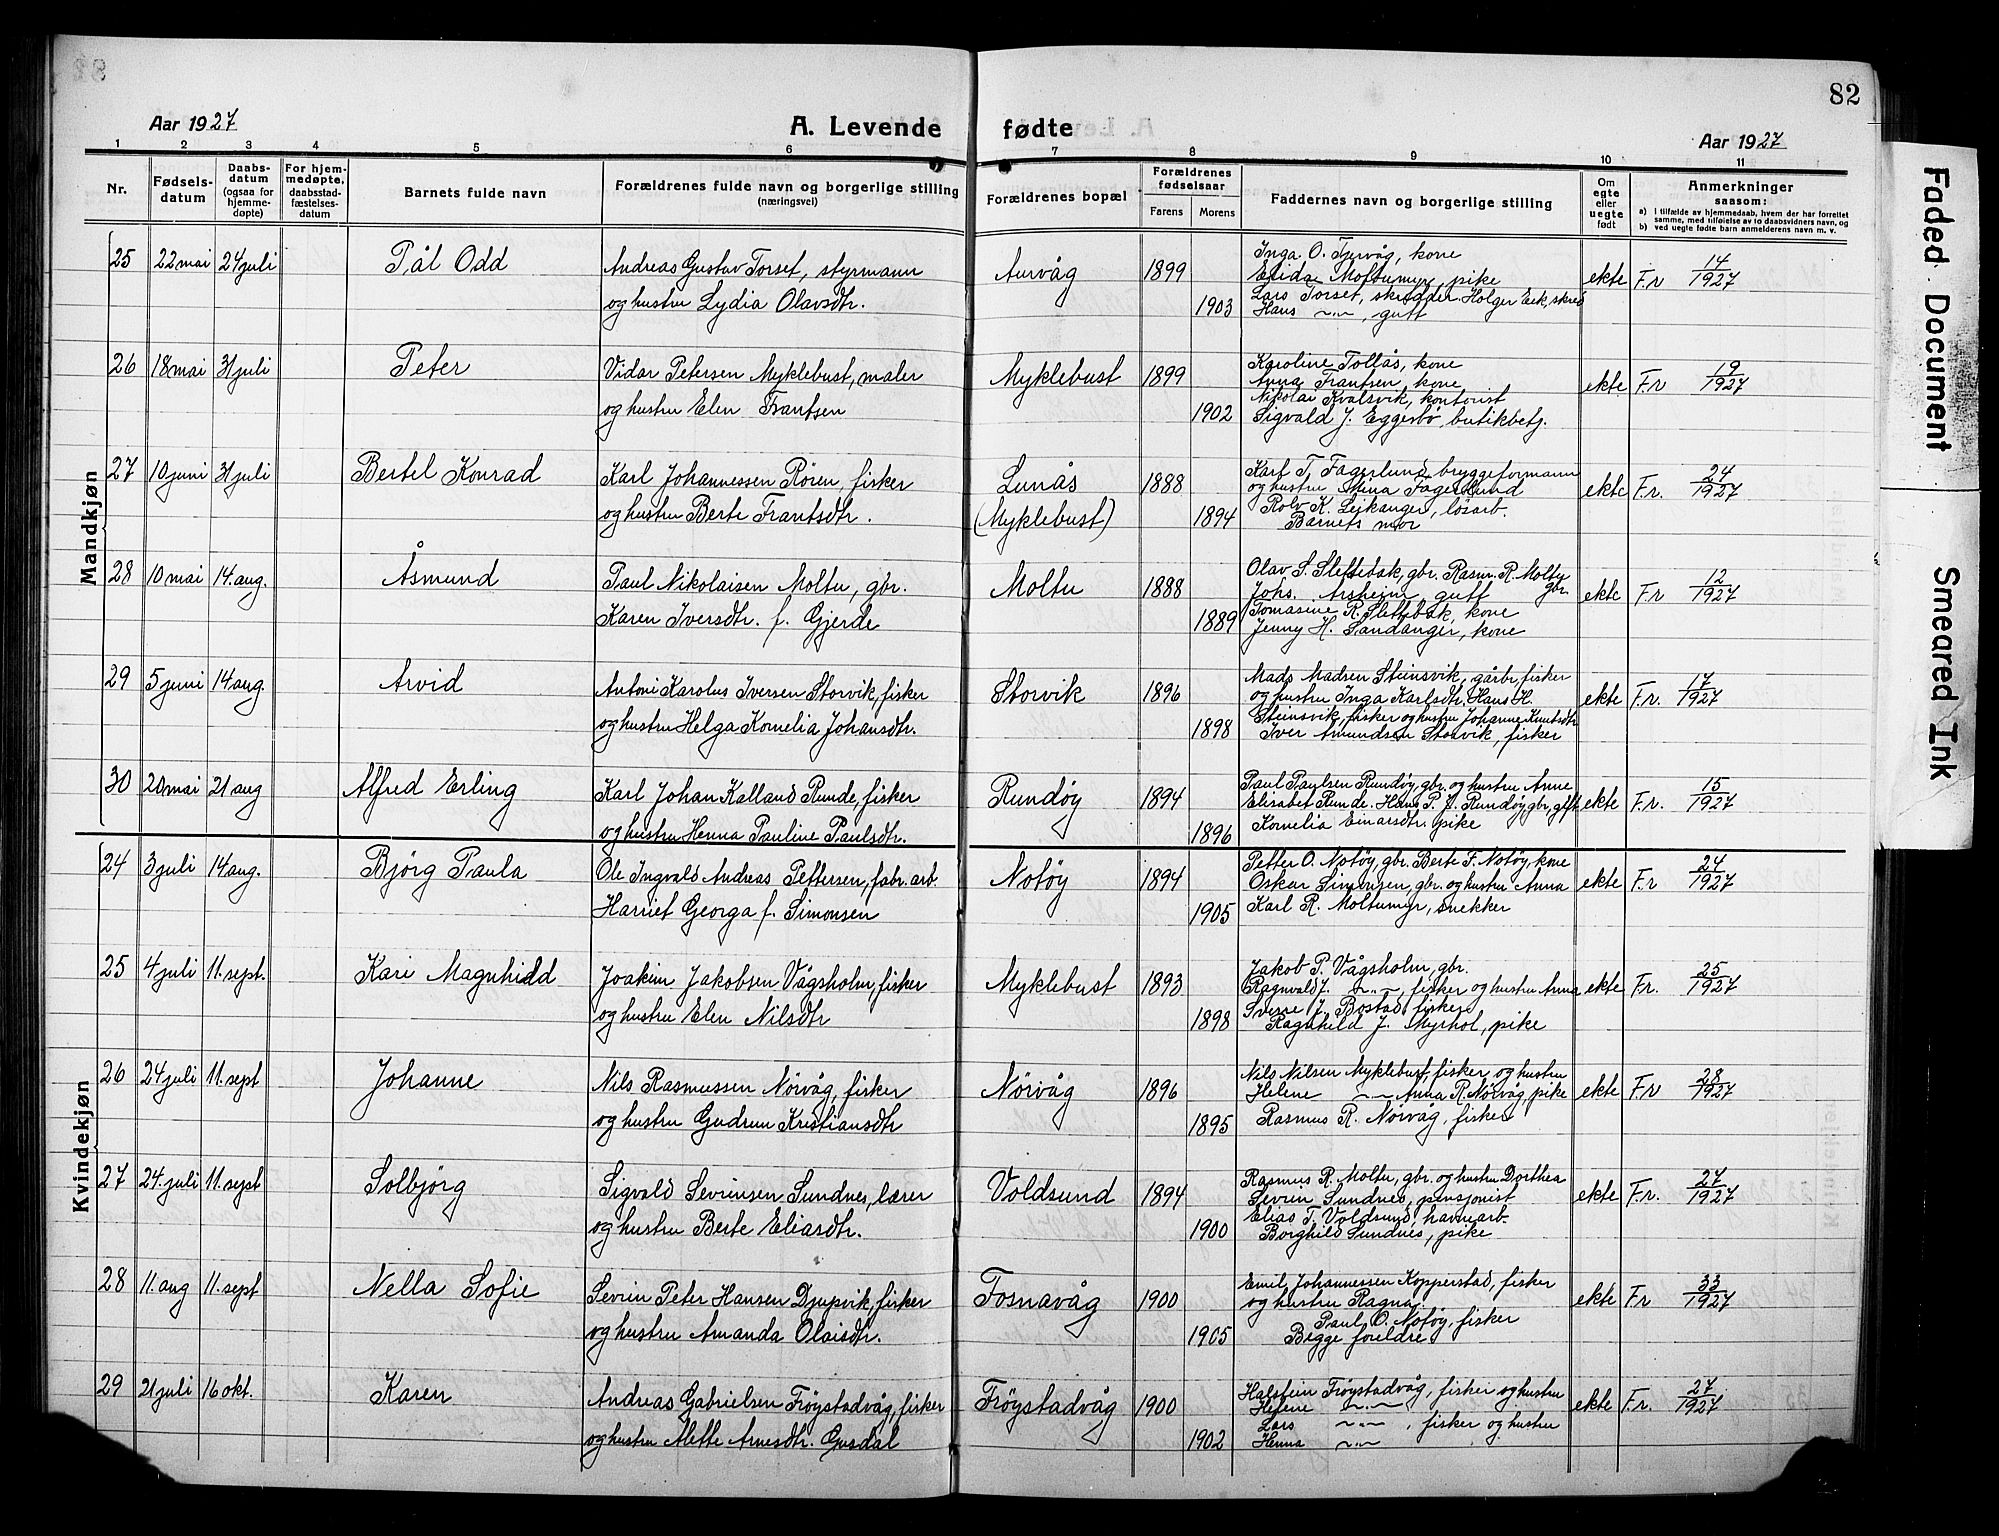 82
Aar 1927
A. Levende fødte
Aar 1927
1 2 3 4 5 6 7 8 9 10 11
Nr.
Fødselsdatum
Daabsdatum (ogsaa for hjemmedøpte)
For hjemmedøpte, daabsstadfæstelsesdatum
Barnets fulde navn
Forældrenes fulde navn og borgerlige stilling (næringsvei)
Forældrenes bopæl
Forældrenes fødselsaar
Farens Morens
Faddernes navn og borgerlige stilling
Om egte eller uegte født
Anmerkninger saasom:
a) I tilfælde av hjemmedaab, hvem der har forrettet samme, med tilføielse av to daabsvidners navn, og
b) ved uegte fødte barn anmelderens navn m. v.
Mandkjøn
25 22 mai 24 juli Pål Odd
Andreas Gustav Torset, styrmann
og hustru Lydia Olavsdtr.
Aurvåg 1899 1903
Inga O. Tjervåg, kone
Elida Moltumyr, pike
Lars Torset, skrædder. Holger Eik, skred
Hans -"-, gutt
ekte F.r 14/1927
26 18 mai 31 juli Peter
Vidar Petersen Myklebust, maler
og hustru Elen Frantsen
Myklebust 1899 1902
Karoline Tollås, kone
Anna Frantsen, kone
Nikolai Kvalsvik, kontorist
Sigvald J. Eggesbö, butikbetj.
ekte F.r 19/1927
27 10 juni 31 juli Bertel Konrad
Karl Johannessen Rören, fisker
og hustru Berte Frantsdtr.
Lunås
(Myklebust)
1888 1894
Karl T. Fagerlund, bryggeformann
og hustru Mina Fagerlund
Rolv K. Leikanger, lösarb.
Barnets mor
ekte F.r. 24/1927
28 10 mai 14. aug. Åsmund
Paul Nikolaisen Moltu, gbr.
Karen Iversdtr. f. Gjerde
Moltu 1888 1889
Olav S. Slettebak, gbr. Rasm. R. Moltu gbr.
Johs. Arsheim, gutt
Tomasine R. Slettebak, kone
Jenny H. Sandanger, kone
ekte F.r 12/1927
29 5 juni 14 aug. Arvid
Antoni Karolus Iversen Storvik, fisker
og hustru Helga Kornelia Johansdtr.
Storvik 1896 1898
Mads Madsen Steinsvik, gårbr, fisker
og hustru Inga Karlsdtr, Hans H.
Steinsvik, fisker og hustru Johanne Knutsdtr
Iver Amundsen Storvik, fisker
ekte F.r. 17/1927
30 20 mai 21 aug Alfred Erling
Karl Johan Kalland Runde, fisker
og hustru Henna Pauline Paulsdtr.
Rundöy 1894 1896
Paul Paulsen Rundöy gbr. og hustru Anne
Elisabet Runde. Hans P. J. Rundöy gbr, gift
Kornelia Einarsdtr. pike
ekte F.r. 15/1927
Kvindekjøn
24 3 juli 14 aug. Björg Paula
Ole Ingvald Andreas Pettersen, fabr. arb.
Harriet Georga f. Simonsen
Notöy 1894 1905
Petter O. Notöy, gbr. Berte F. Notöy, kone
Oskar Simonsen, gbr. og hustru Anna
Karl R. Moltumyr, snekker
ekte F.r 24/1927
25 4 juli 11. sept. Kari Magnhild
Joakim Jakobsen Vågsholm, fisker
og hustru Elen Nilsdtr
Myklebust 1893 1898
Jakob P. Vågsholm, gbr.
Ragnvald J. -"-, fisker og hustru Anna
Sverre J. Bostad, fisker
Ragnhild J. Myrhol, pike
ekte F.r. 25/1927
26 24 juli 11. sept Johanne
Nils Rasmussen Nörvåg, fisker
og hustru Gudrun Kristiansdtr
Nörvåg 1896 1895
Nils Nilsen Myklebust, fisker og hustru
Helene -"- Anna R. Nörvåg, pike
Rasmus R. Nörvåg, fisker
ekte F.r 28/1927
27 24. juli 11. sept Solbjörg
Sigvald Sevrinsen Sundnes, lærer
og hustru Berte Eliasdtr.
Voldsund 1894 1900
Rasmus R. Moltu, gbr. og hustru Dorthea
Sevrin Sundnes, pensjonist
Elias T. Voldsund, havnearb.
Borghild Sundnes, pike
ekte F.r. 27/1927
28 11. aug 11. sept Nella Sofie
Sevrin Peter Hansen Djupvik, fisker
og hustru Amanda Olaisdtr.
Fosnavåg 1900 1905
Emil Johannessen Kopperstad, fisker
og hustru Ragna.
Paul O. Notöy, fisker
Begge foreldre
ekte Fr 33/1927
29 21 juli 16 okt. Karen
Andreas Gabrielsen Fröystadvåg, fisker
og hustru Alette Arnesdtr. Gusdal
Fröystadvåg 1900 1902
Halstein Fröystadvåg, fisker og hustru
Helene -"-
Lars -"-, fisker og hustru
Henna -"-
ekte F.r. 27/1927
Faded Document
Smeared Ink